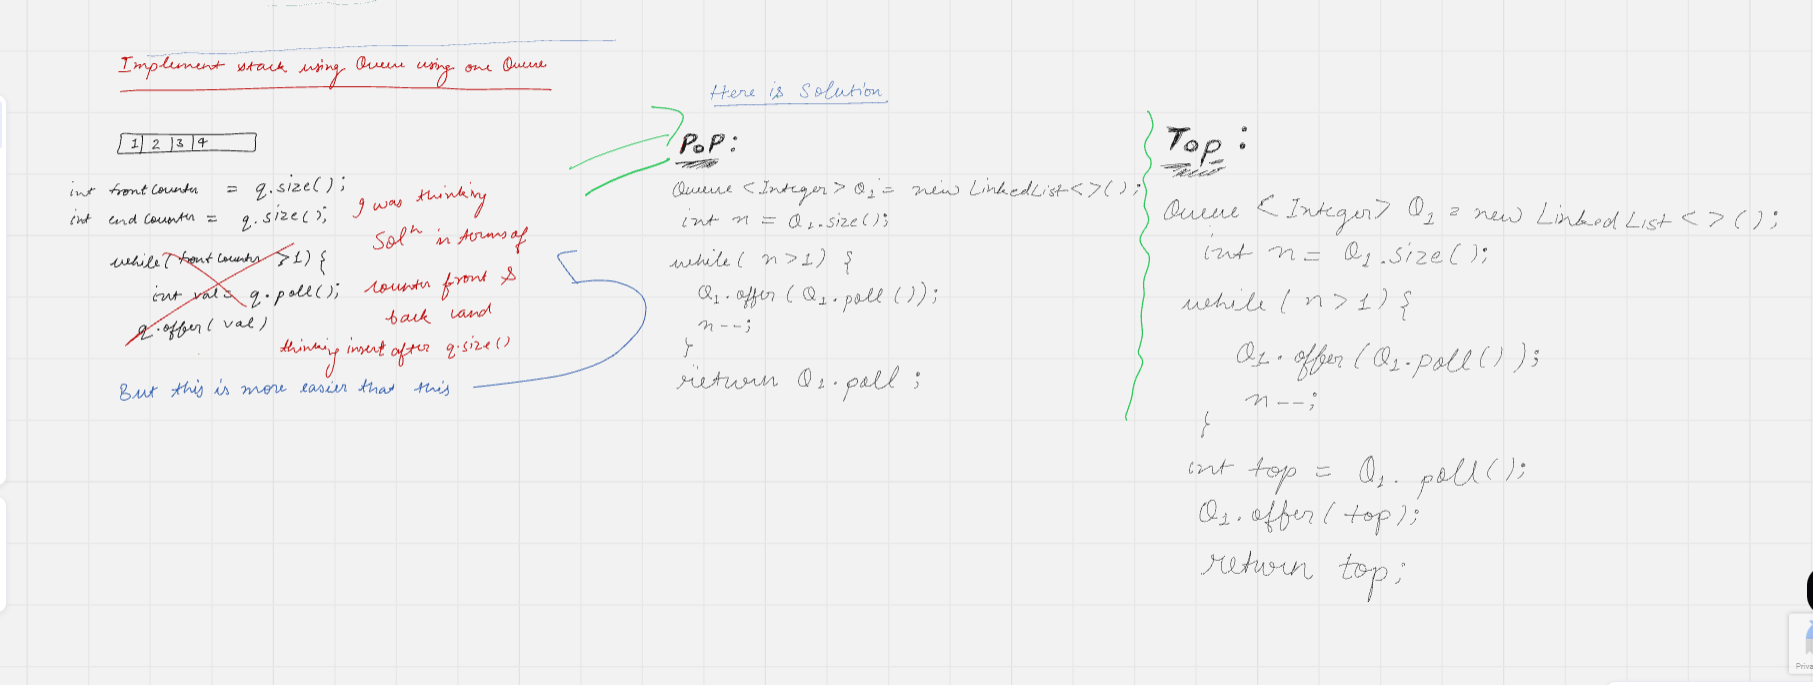 Implement stack using Queue using one Queue
1 2 3 4
int front counter = q.size();
int end counter = q.size();
while( front counter >1) {
int val = q.poll();
q.offer( val)
I was thinking
Solⁿ in terms of
counter front &
back and
thinking insert after q.size()
But this is more easier that this
Here is Solution
PoP:
Queue <Integer> Q1 = new LinkedList<>();
int n = Q1.size();
while( n>1) {
Q1.offer (Q1.poll ());
n--;
}
return Q1.poll ;
Top :
Queue <Integer> Q1 = new Linked List <>();
int n = Q1.size();
while ( n>1) {
Q1.offer (Q1.poll());
n--;
}
int top = Q1. poll();
Q1.offer( top);
return top;
Priva